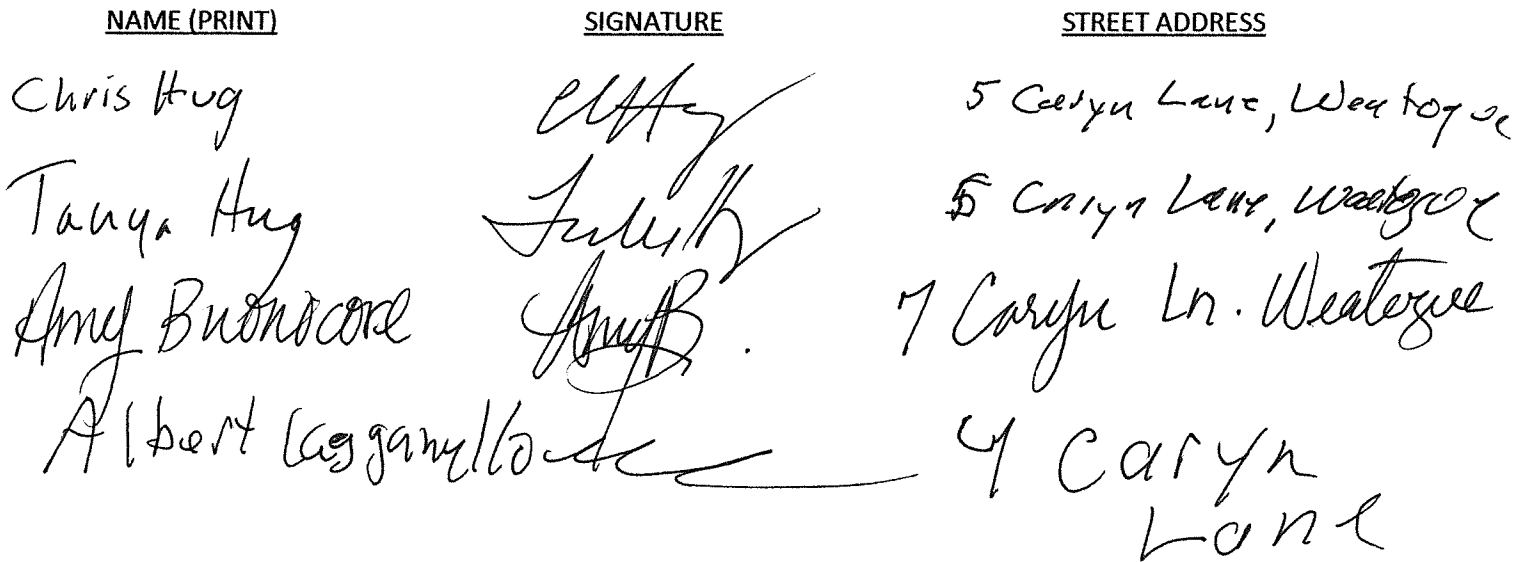 NAME (PRINT) SIGNATURE STREET ADDRESS
Chris Hug 5 Caryn Lane, Weatogue
Tanya Hug 5 Caryn Lane, Weatogue
Amy Buonocore Amy B. 7 Caryn Ln. Weatogue
Albert 4 Caryn
Lane